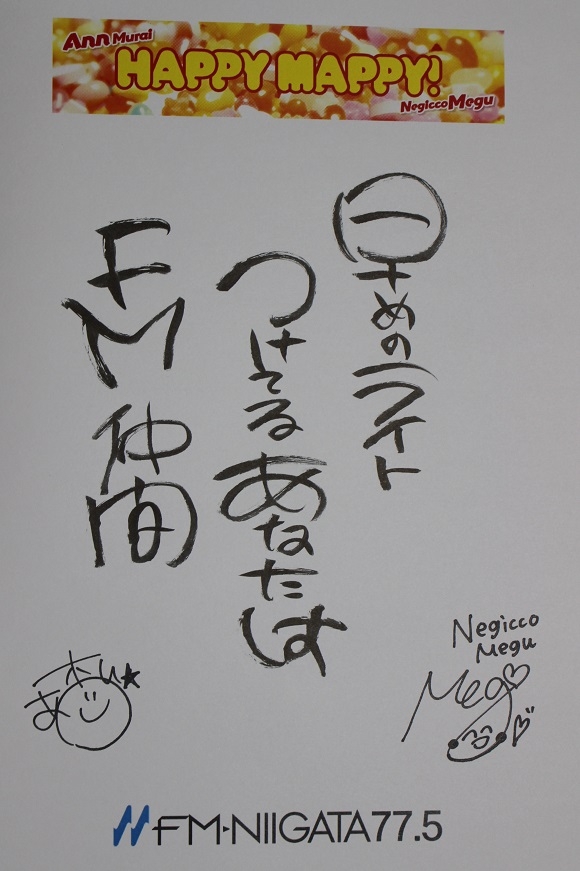 Ann Murai
HAPPY MAPPY!
Negicco Megu
早めのライト
つけてるあなたは
FM仲間
Negicco
Megu
Meg
FM-NIIGATA 77.5